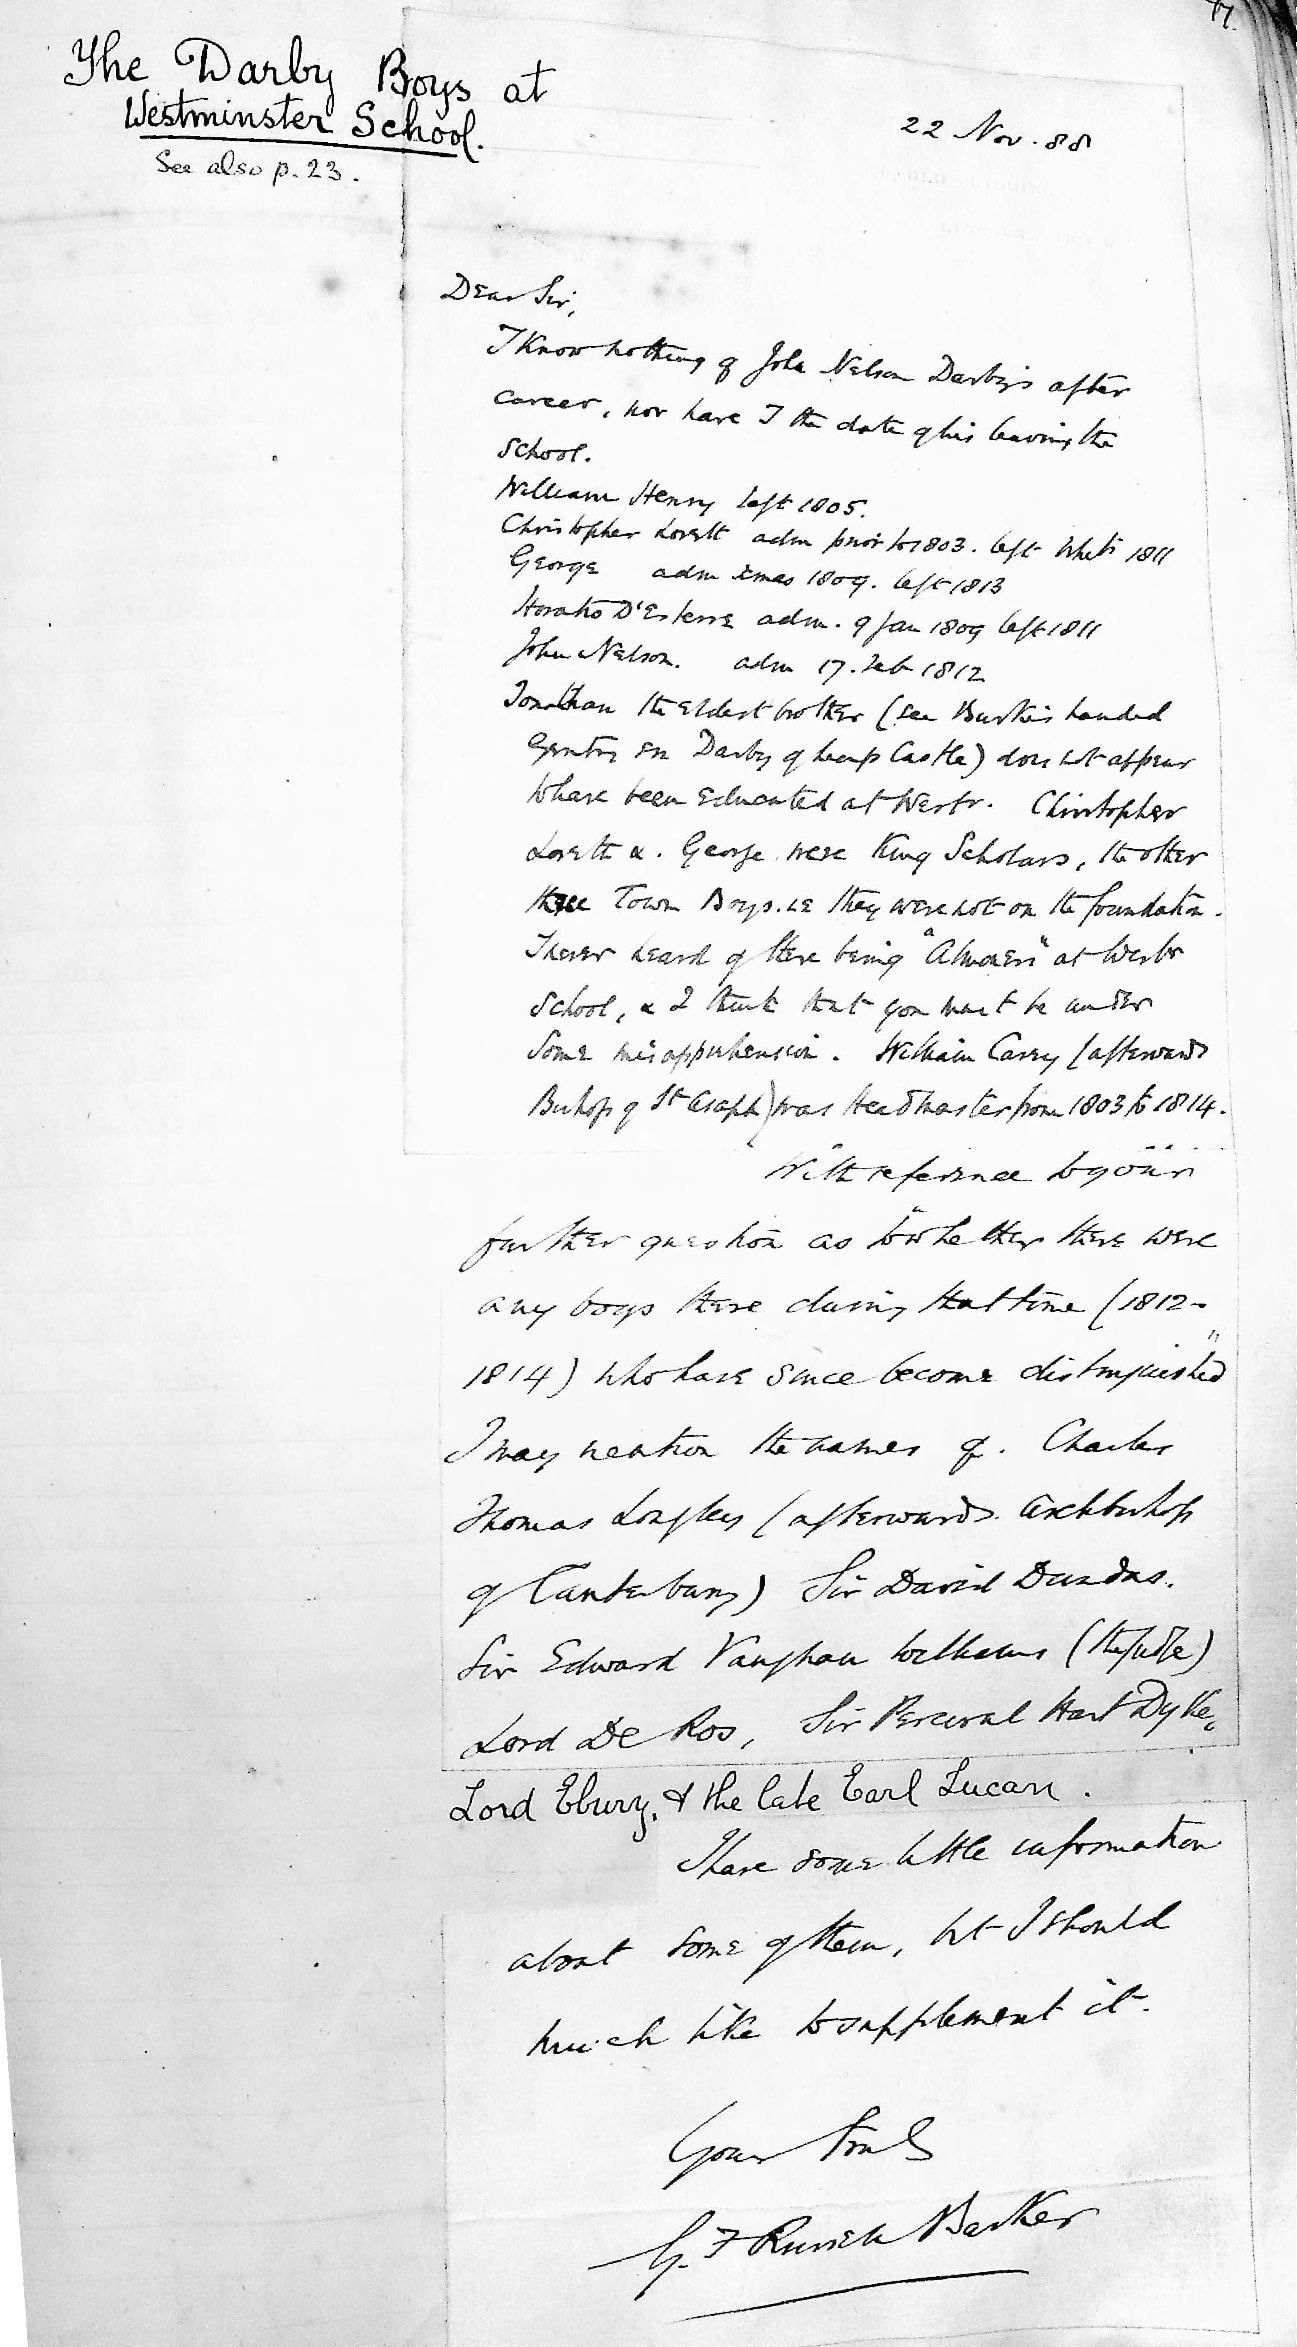 The Darby Boys at
Westminster School.
See also p. 23.
22 Nov. 88
Dear Sir,
I know nothing of John Nelson Darby's after
career, nor have I the date of his leaving the
School.
William Henry left 1805.
Christopher Lovett adm prior to 1803. left Whits 1811
George adm Xmas 1809. left 1813
Horatio D'Esterre adm. 9 Jan 1809 left 1811
John Nelson. adm 17. Feb 1812
Jonathan the eldest brother (see Burke's Landed
Gentry on Darby of Leap Castle) does not appear
to have been educated at Westr. Christopher
Lovett & George were King Scholars, the other
three Town Boys. ie they were not on the foundation.
I never heard of there being "Almoners" at Westr
School, & I think that you must be under
some misapprehension. William Carey (afterwards
Bishop of St Asaph) was Headmaster from 1803 to 1814.
With reference to your
further question as to "whether there were
any boys there during that time (1812-
1814) who have since become distinguished"
I may mention the names of. Charles
Thomas Longley (afterwards Archbishop
of Canterbury) Sir David Dundas.
Sir Edward Vaughan Williams (the Judge)
Lord De Ros, Sir Percival Hart Dyke,
Lord Ebury, & the late Earl Lucan.
I have some little information
about some of them, but I should
much like to supplement it.
Yours truly
G. F Russell Barker